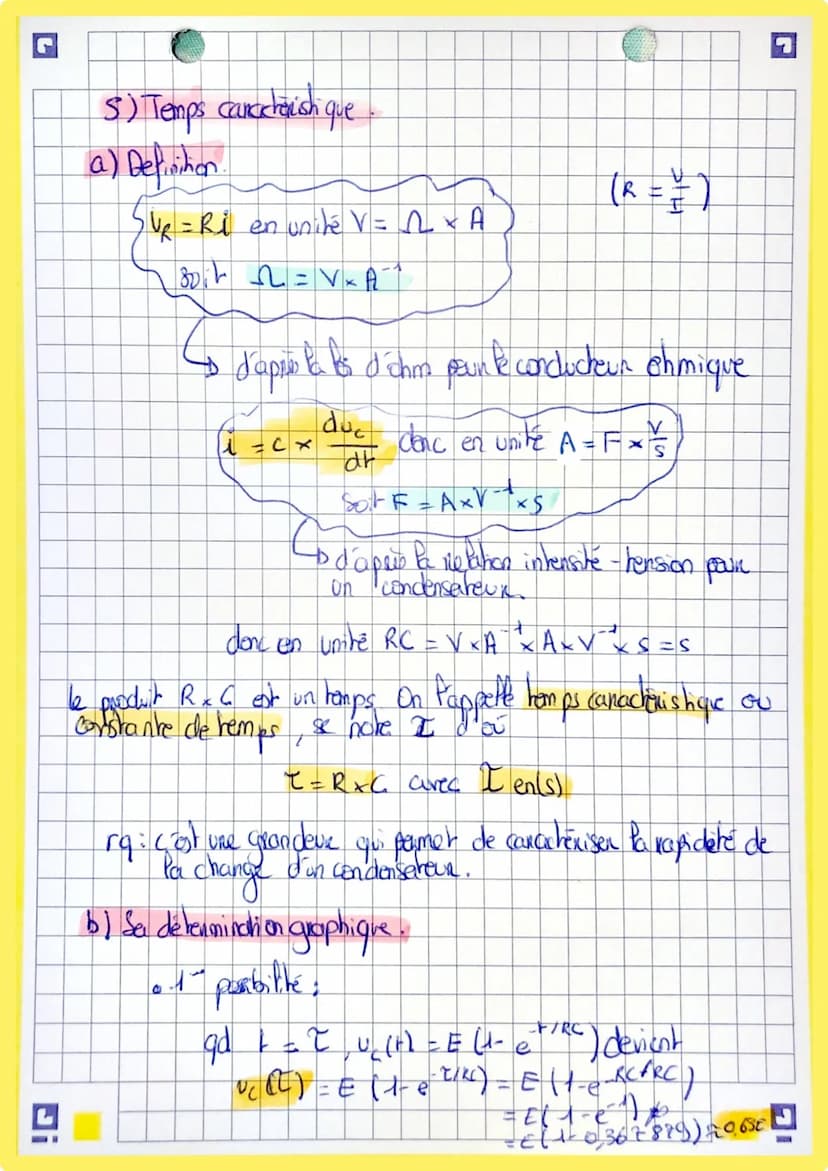 5) Temps caractéristique.
a) Définition.
(R = U/I)
U_R = Ri en unité V = Ω × A
soit Ω = V × A⁻¹
↳ d'après la loi d'ohm pour le conducteur ohmique
i = C × du_c/dt donc en unité A = F × V/s
soit F = A × V⁻¹ × s
↳ d'après la relation intensité-tension pour
un condensateur.
donc en unité RC = V × A⁻¹ × A × V⁻¹ × s = s
le produit R × C est un temps. On l'appelle temps caractéristique ou
constante de temps, se note τ d'où
τ = R × C avec τ en (s)
rq : c'est une grandeur qui permet de caractériser la rapidité de
la charge d'un condensateur.
b) Sa détermination graphique.
• 1ʳᵉ possibilité :
qd t = τ, u_c(t) = E (1 - e^(-t/RC)) devient
u_c(τ) = E (1 - e^(-τ/RC)) = E (1 - e^(-RC/RC))
= E (1 - e⁻¹)
= E (1 - 0,367879) ≈ 0,63E